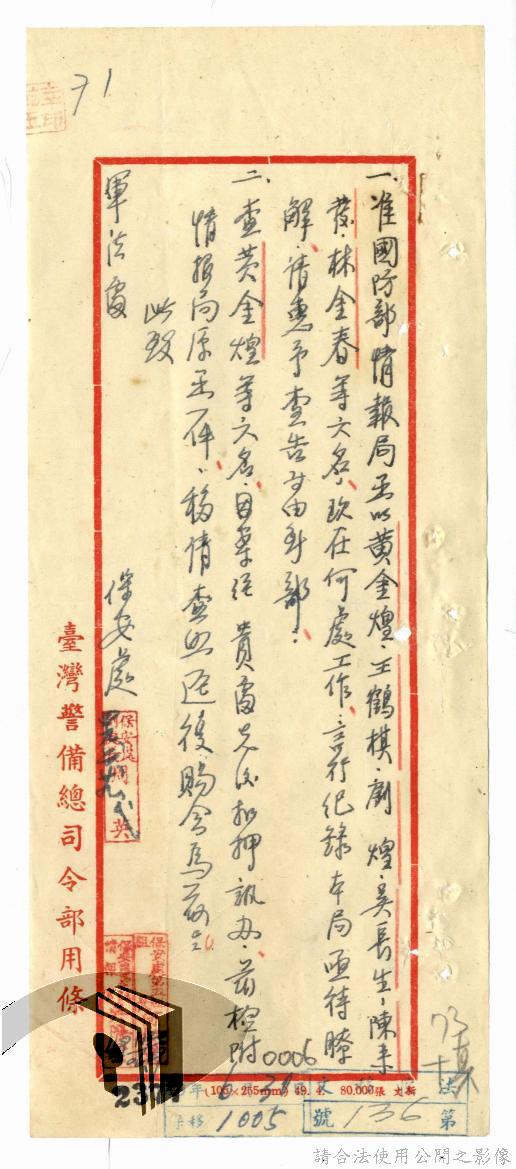 71
一、准國防部情報局函以黃金煌、王鶴棋、劉煌、吳長生、陳秉
發、林金春等六名，現在何處工作、言行紀錄本局亟待瞭
解、請惠予查告等由到部：
二、查黃金煌等六名，因案經貴處先後扣押訊辦，茲檢附
情報局原函一件，移請查照逕復賜會為荷
此致
軍法處
保安處
臺灣警備總司令部用條
0006
(105×265mm) 49. 4. 80,000張
法 第
136 號
1005
請合法使用公開之影像